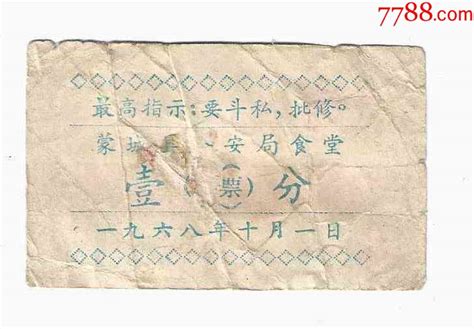 7788.com
最高指示：要斗私，批修。
蒙城 安局食堂
壹（票）分
一九六八年十月一日